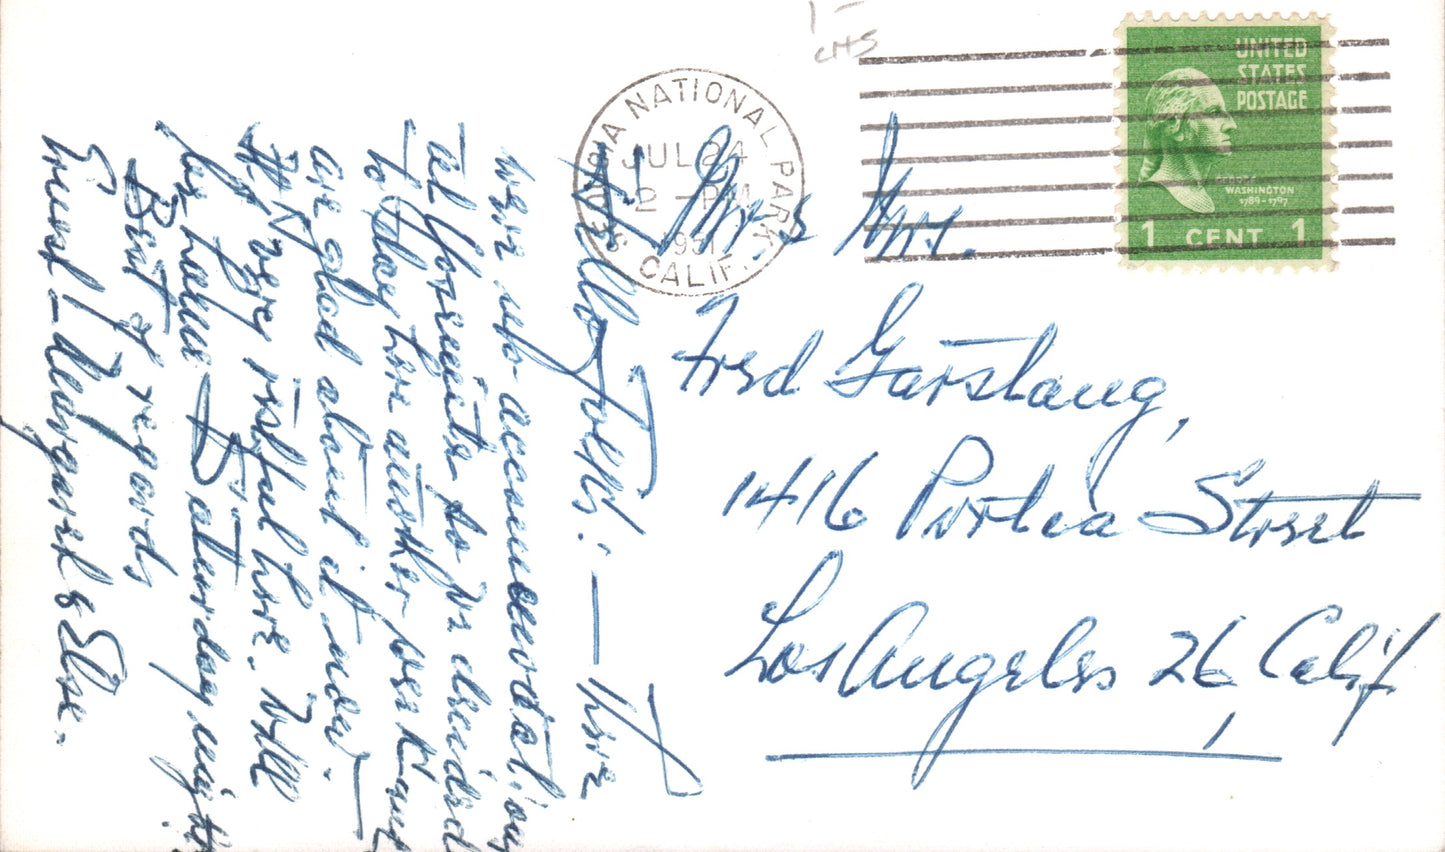 1 —
cts
SEQUOIA NATIONAL PARK
JUL 24
2 - PM
195
CALIF.
UNITED
STATES
POSTAGE
GEORGE
WASHINGTON
1789-1797
1 CENT 1
Mr. & Mrs.
Fred Garstang,
1416 Portia Street
Los Angeles 26, Calif
Hello Folks! — There
were no accommodations
at Yosemite so we decided
to stay here another week and
are glad about it now —
It is very restful here. Will
be home Saturday night
Best of regards
Ernest - Margaret & Elise.